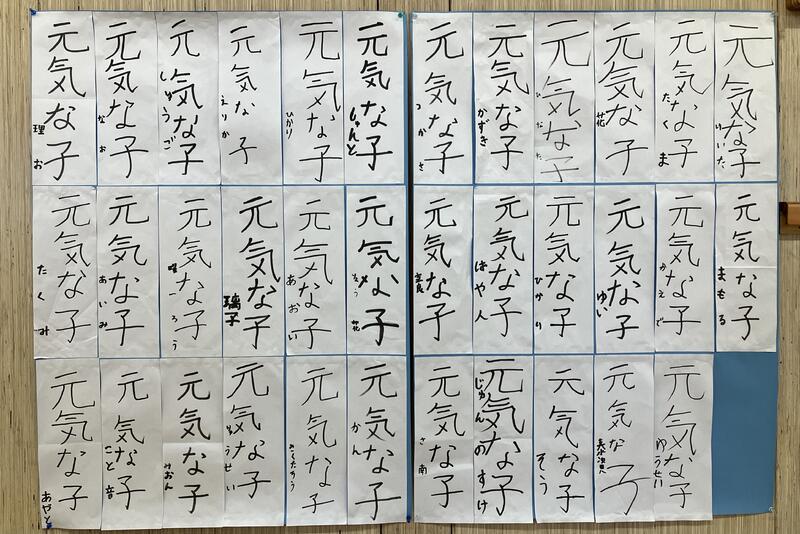 元気な子
理お
元気な子
なお
元気な子
しゅうご
元気な子
えりか
元気な子
ひかり
元気な子
しゅんと
元気な子
つかさ
元気な子
かずき
元気な子
ひなた
元気な子
花
元気な子
たくま
元気な子
りいた
元気な子
たくみ
元気な子
あいみ
元気な子
元気な子
璃子
元気な子
あおい
元気な子
元気な子
元気な子
はや人
元気な子
ひかり
元気な子
ゆい
元気な子
かえで
元気な子
まもる
元気な子
あやと
元気な子
こと音
元気な子
みおん
元気な子
元気な子
元気な子
かん
元気な子
さ南
元気の
じゅんのすけ
元気な子
そう
元気な子
元気な子
ゆうせい